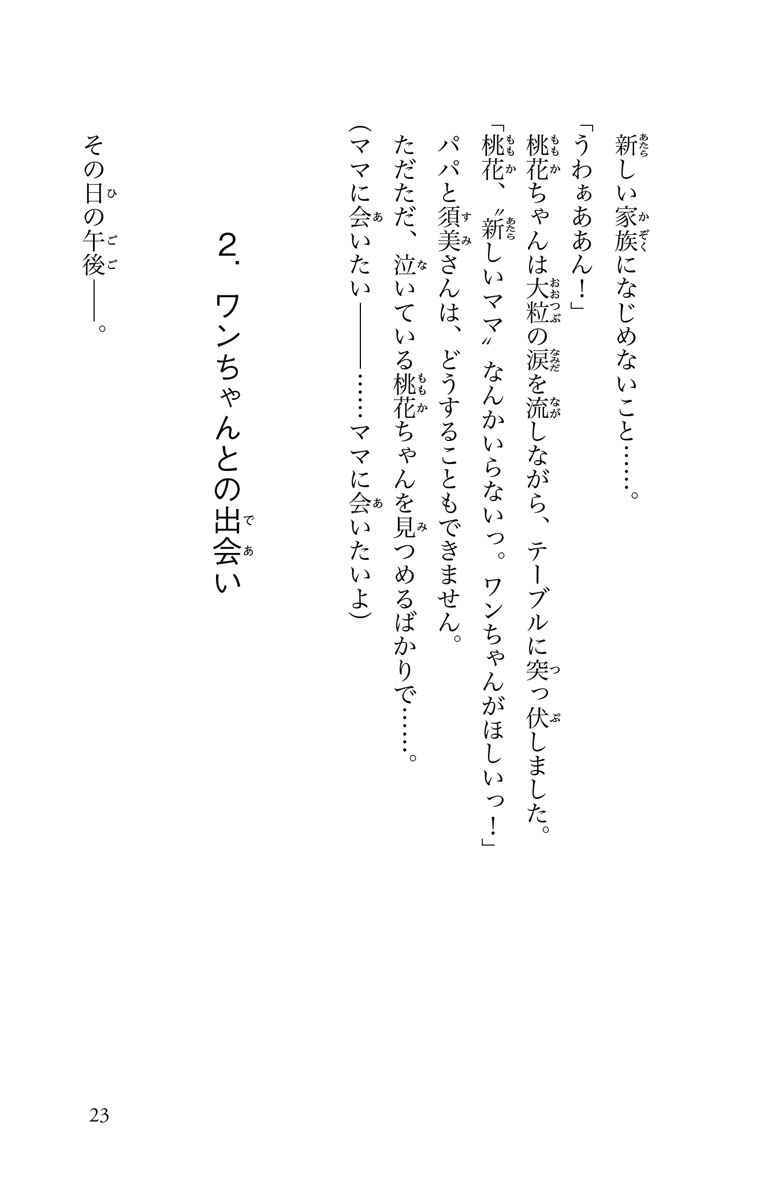 新しい家族になじめないこと……。
「うわぁああん！」
桃花ちゃんは大粒の涙を流しながら、テーブルに突っ伏しました。
「桃花、〝新しいママ〟なんかいらないっ。ワンちゃんがほしいっ！」
パパと須美さんは、どうすることもできません。
ただただ、泣いている桃花ちゃんを見つめるばかりで……。
（ママに会いたい――……ママに会いたいよ）
2．ワンちゃんとの出会い
その日の午後――。
23